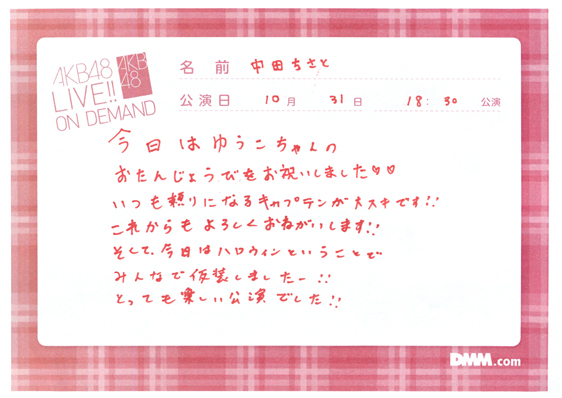 AKB48
LIVE!!
ON DEMAND
AKB
48
名前 中田ちさと
公演日 10月 31日 18:30 公演
今日はゆうこちゃんの
おたんじょうびをお祝いしました♡♡
いつも頼りになるキャプテンが大スキです!!
これからもよろしくおねがいします!!
そして、今日はハロウィンということで
みんなで仮装しましたー!!
とっても楽しい公演でした!!
DMM.com